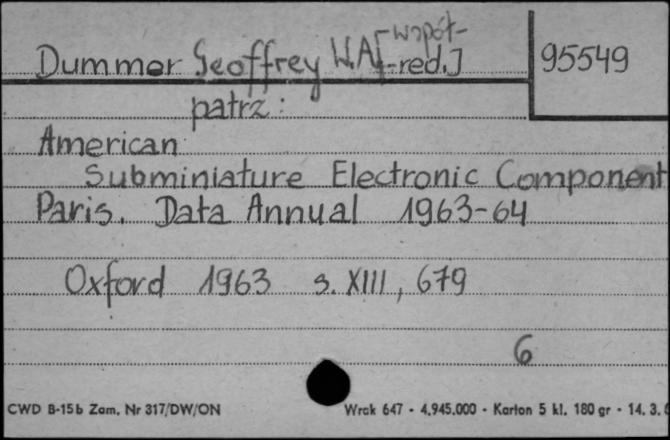 Dummer Geoffrey W.A. [współ-
red.]
95549
patrz:
American
Subminiature Electronic Component
Paris. Data Annual 1963-64
Oxford 1963 s. XIII, 679
6
CWD B-15b Zam. Nr 317/DW/ON
Wrak 647 - 4.945.000 - Karton 5 kl. 180 gr - 14. 3.